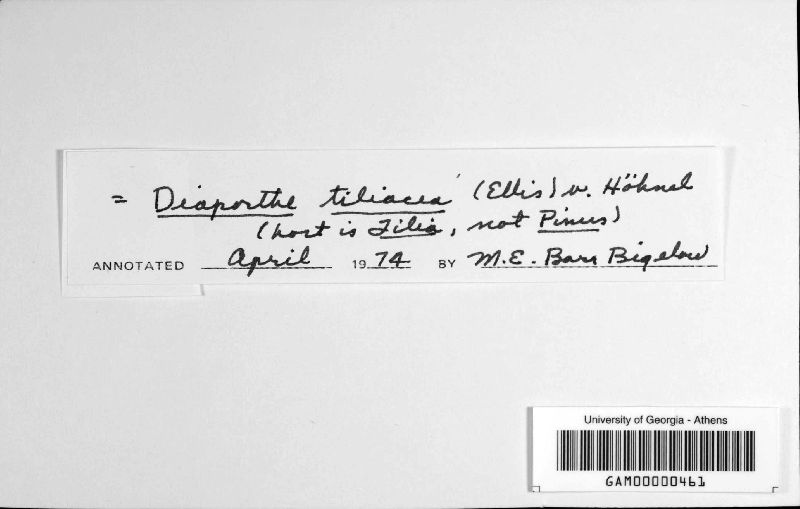 = Diaporthe tiliacea (Ellis) v. Höhnel
(host is Tilia, not Pinus)
ANNOTATED April 1974 BY M.E. Barr Bigelow
University of Georgia - Athens
GAM00000461